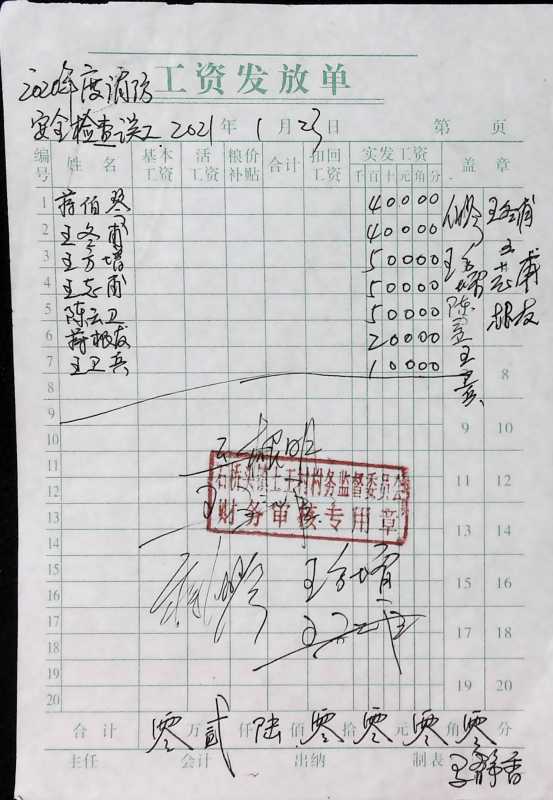 工资发放单
2020年度消防
安全检查误工 2021 年 1 月 23 日 第 页
编号 姓名 基本工资 活工资 粮价补贴 合计 扣回工资 实发工资 盖章
千 百 十 元 角 分
1 蒋伯琴 40000
2 王冬甫 40000
3 王方增 50000
4 王志甫 50000
5 陈云卫 50000
6 蒋根友 20000 根友
7 王卫兵 10000
8 8
9 9 10
10
11 11 12
12
13 13 14
14
15 15 16
16
17 17 18
18
19 19 20
20
石桥头镇上王村村务监督委员会
财务审核专用章
合计 零 万 贰 仟 陆 佰 零 拾 零 元 零 角 零 分
主任 会计 出纳 制表